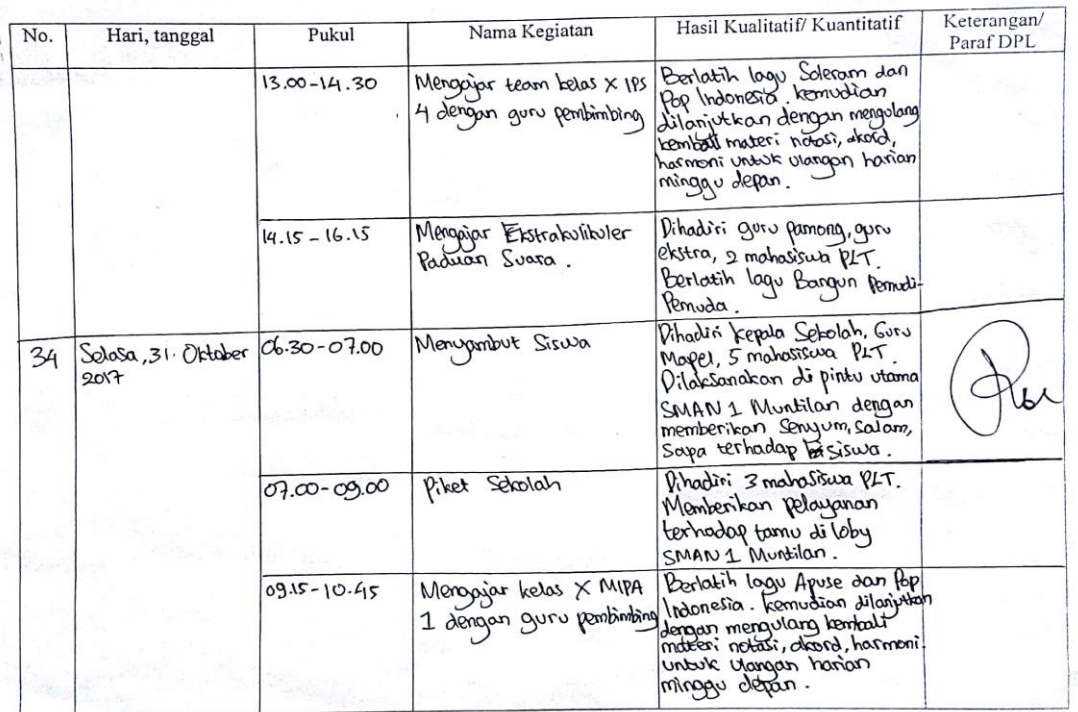 No. Hari, tanggal Pukul Nama Kegiatan Hasil Kualitatif/ Kuantitatif Keterangan/
Paraf DPL
13.00-14.30 Mengajar team kelas X IPS
4 dengan guru pembimbing
Berlatih lagu Soleram dan
Pop Indonesia. kemudian
dilanjutkan dengan mengulang
kembali materi notasi, akord,
harmoni untuk ulangan harian
minggu depan.
14.15 - 16.15 Mengajar Ekstrakulikuler
Paduan Suara.
Dihadiri guru pamong, guru
ekstra, 2 mahasiswa PLT.
Berlatih lagu Bangun Pemudi-
Pemuda.
34 Selasa, 31. Oktober
2017
06.30-07.00 Menyambut Siswa
Dihadiri kepala Sekolah, Guru
Mapel, 5 mahasiswa PLT.
Dilaksanakan di pintu utama
SMAN 1 Muntilan dengan
memberikan Senyum, Salam,
Sapa terhadap siswa.
07.00-09.00 Piket Sekolah
Dihadiri 3 mahasiswa PLT.
Memberikan pelayanan
terhadap tamu di loby
SMAN 1 Muntilan.
09.15-10.45 Mengajar kelas X MIPA
1 dengan guru pembimbing
Berlatih lagu Apuse dan Pop
Indonesia. kemudian dilanjutkan
dengan mengulang kembali
materi notasi, akord, harmoni
untuk ulangan harian
minggu depan.